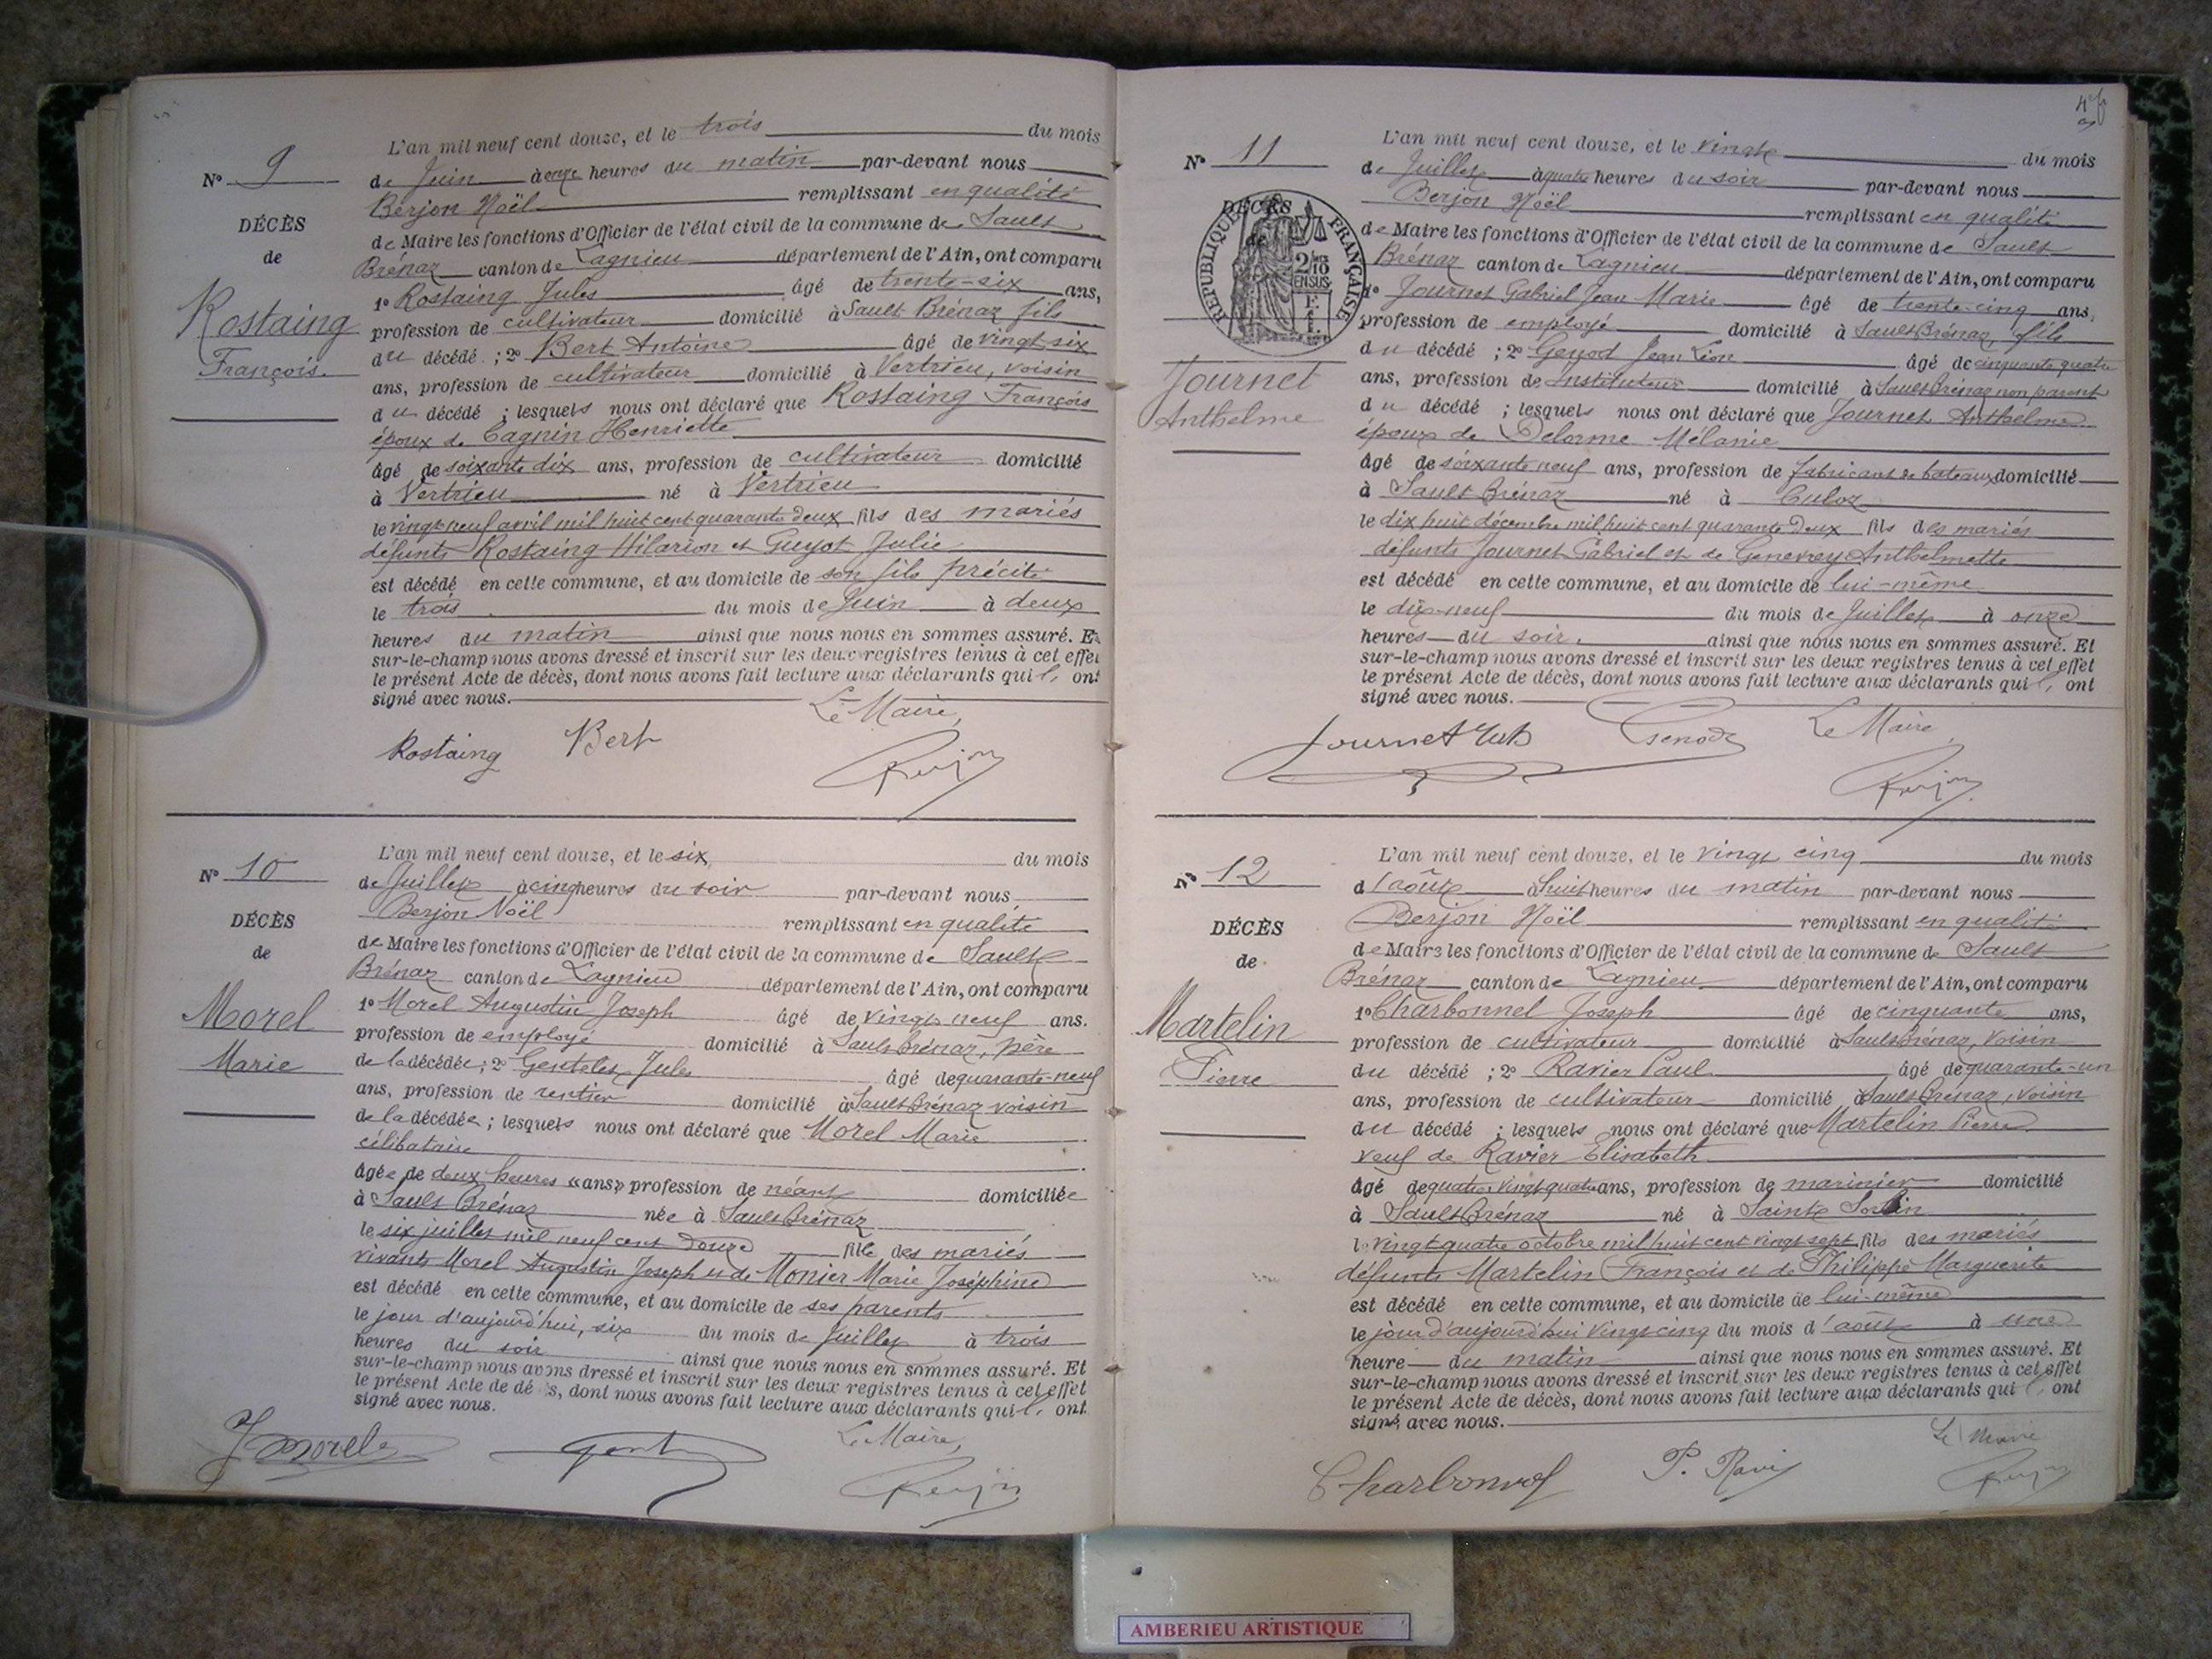 L'an mil neuf cent douze, et le trois du mois
N° 9
de Juin à onze heures du matin par-devant nous
Berjon Noël remplissant en qualité
DÉCÈS
de Maire les fonctions d'Officier de l'état civil de la commune de Sault
de
Brénaz canton de Lagnieu département de l'Ain, ont comparu
1° Rostaing Jules âgé de trente-six ans,
Rostaing
profession de cultivateur domicilié à Sault-Brénaz fils
François.
du décédé ; 2° Bert Antoine âgé de vingt six
ans, profession de cultivateur domicilié à Vertrieu, voisin
du décédé ; lesquels nous ont déclaré que Rostaing François
époux de Cagnin Henriette
âgé de soixante dix ans, profession de cultivateur domicilié
à Vertrieu né à Vertrieu
le vingt neuf avril mil huit cent quarante deux fils des mariés
défunts Rostaing Hilarion et Guyot Julie
est décédé en cette commune, et au domicile de son fils précité
le trois du mois de Juin à deux
heures du matin ainsi que nous nous en sommes assuré. Et
sur-le-champ nous avons dressé et inscrit sur les deux registres tenus à cet effet
le présent Acte de décès, dont nous avons fait lecture aux déclarants qui l' ont
signé avec nous.
Le Maire,
Rostaing Bert Berjon
L'an mil neuf cent douze, et le six du mois
N° 10
de Juillet à cinq heures du soir par-devant nous
Berjon Noël remplissant en qualité
DÉCÈS
de Maire les fonctions d'Officier de l'état civil de la commune de Sault
de
Brénaz canton de Lagnieu département de l'Ain, ont comparu
1° Morel Augustin Joseph âgé de vingt neuf ans.
Morel
profession de employé domicilié à Sault-Brénaz, père
Marie
de la décédée ; 2° Gentelet Jules âgé de quarante-neuf
ans, profession de rentier domicilié à Sault-Brénaz voisin
de la décédée ; lesquels nous ont déclaré que Morel Marie
célibataire
âgée de deux heures "ans" profession de néant domiciliée
à Sault Brénaz née à Sault Brénaz
le six juillet mil neuf cent douze fille des mariés
vivants Morel Augustin Joseph et de Monier Marie Joséphine
est décédé en cette commune, et au domicile de ses parents
le jour d'aujourd'hui, six du mois de Juillet à trois
heures du soir ainsi que nous nous en sommes assuré. Et
sur-le-champ nous avons dressé et inscrit sur les deux registres tenus à cet effet
le présent Acte de dé s, dont nous avons fait lecture aux déclarants qui l' ont
signé avec nous.
Le Maire,
Morel Gent Berjon
L'an mil neuf cent douze, et le vingt du mois
N° 11
de Juillet à quatre heures du soir par-devant nous
Berjon Noël remplissant en qualité
DÉCÈS
RÉPUBLIQUE FRANÇAISE
2/10 EN SUS
de Maire les fonctions d'Officier de l'état civil de la commune de Sault
Brénaz canton de Lagnieu département de l'Ain, ont comparu
1° Journet Gabriel Jean Marie âgé de trente-cinq ans,
profession de employé domicilié à Sault Brénaz, fils
du décédé ; 2° Genod Jean Léon âgé de cinquante quatre
Journet
ans, profession de instituteur domicilié à Sault Brénaz non parent
Anthelme
du décédé ; lesquels nous ont déclaré que Journet Anthelme
époux de Delorme Mélanie
âgé de soixante neuf ans, profession de fabricant de bateaux domicilié
à Sault Brénaz né à Culoz
le dix huit décembre mil huit cent quarante deux fils des mariés
défunts Journet Gabriel et de Genevrey Anthelmette
est décédé en cette commune, et au domicile de lui-même
le dix-neuf du mois de Juillet à onze
heures du soir. ainsi que nous nous en sommes assuré. Et
sur-le-champ nous avons dressé et inscrit sur les deux registres tenus à cet effet
le présent Acte de décès, dont nous avons fait lecture aux déclarants qui l' ont
signé avec nous.
Journet Genod Le Maire,
Berjon
L'an mil neuf cent douze, et le vingt cinq du mois
N° 12
d'août à huit heures du matin par-devant nous
Berjon Noël remplissant en qualité
DÉCÈS
de Maire les fonctions d'Officier de l'état civil de la commune de Sault
de
Brénaz canton de Lagnieu département de l'Ain, ont comparu
1° Charbonnel Joseph âgé de cinquante ans,
Martelin
profession de cultivateur domicilié à Sault Brénaz, voisin
Pierre
du décédé ; 2° Ravier Paul âgé de quarante-un
ans, profession de cultivateur domicilié à Sault Brénaz, voisin
du décédé ; lesquels nous ont déclaré que Martelin Pierre
veuf de Ravier Elisabeth
âgé de quatre vingt quatre ans, profession de marinier domicilié
à Sault Brénaz né à Sainte Sorlin
le vingt quatre octobre mil huit cent vingt sept fils des mariés
défunts Martelin François et de Philippe Marguerite
est décédé en cette commune, et au domicile de lui-même
le jour d'aujourd'hui vingt cinq du mois d'août à une
heure du matin ainsi que nous nous en sommes assuré. Et
sur-le-champ nous avons dressé et inscrit sur les deux registres tenus à cet effet
le présent Acte de décès, dont nous avons fait lecture aux déclarants qui l' ont
signé avec nous.
Le Maire
Charbonnel P. Ravier Berjon
AMBERIEU ARTISTIQUE